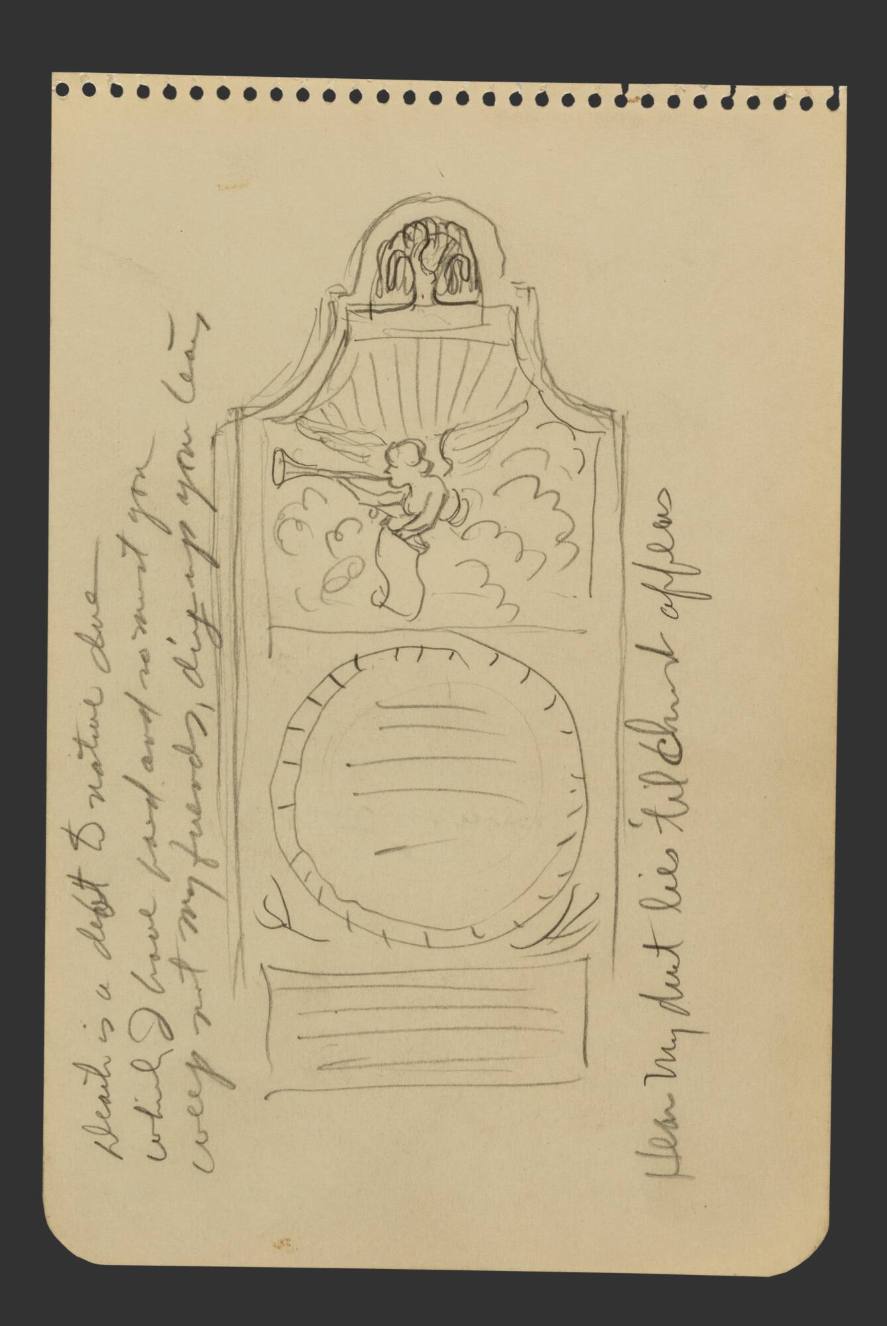 Death is a debt to nature due
which I have paid and so must you
weep not my friends, dry up your tears
my dust lies 'til Christ appears